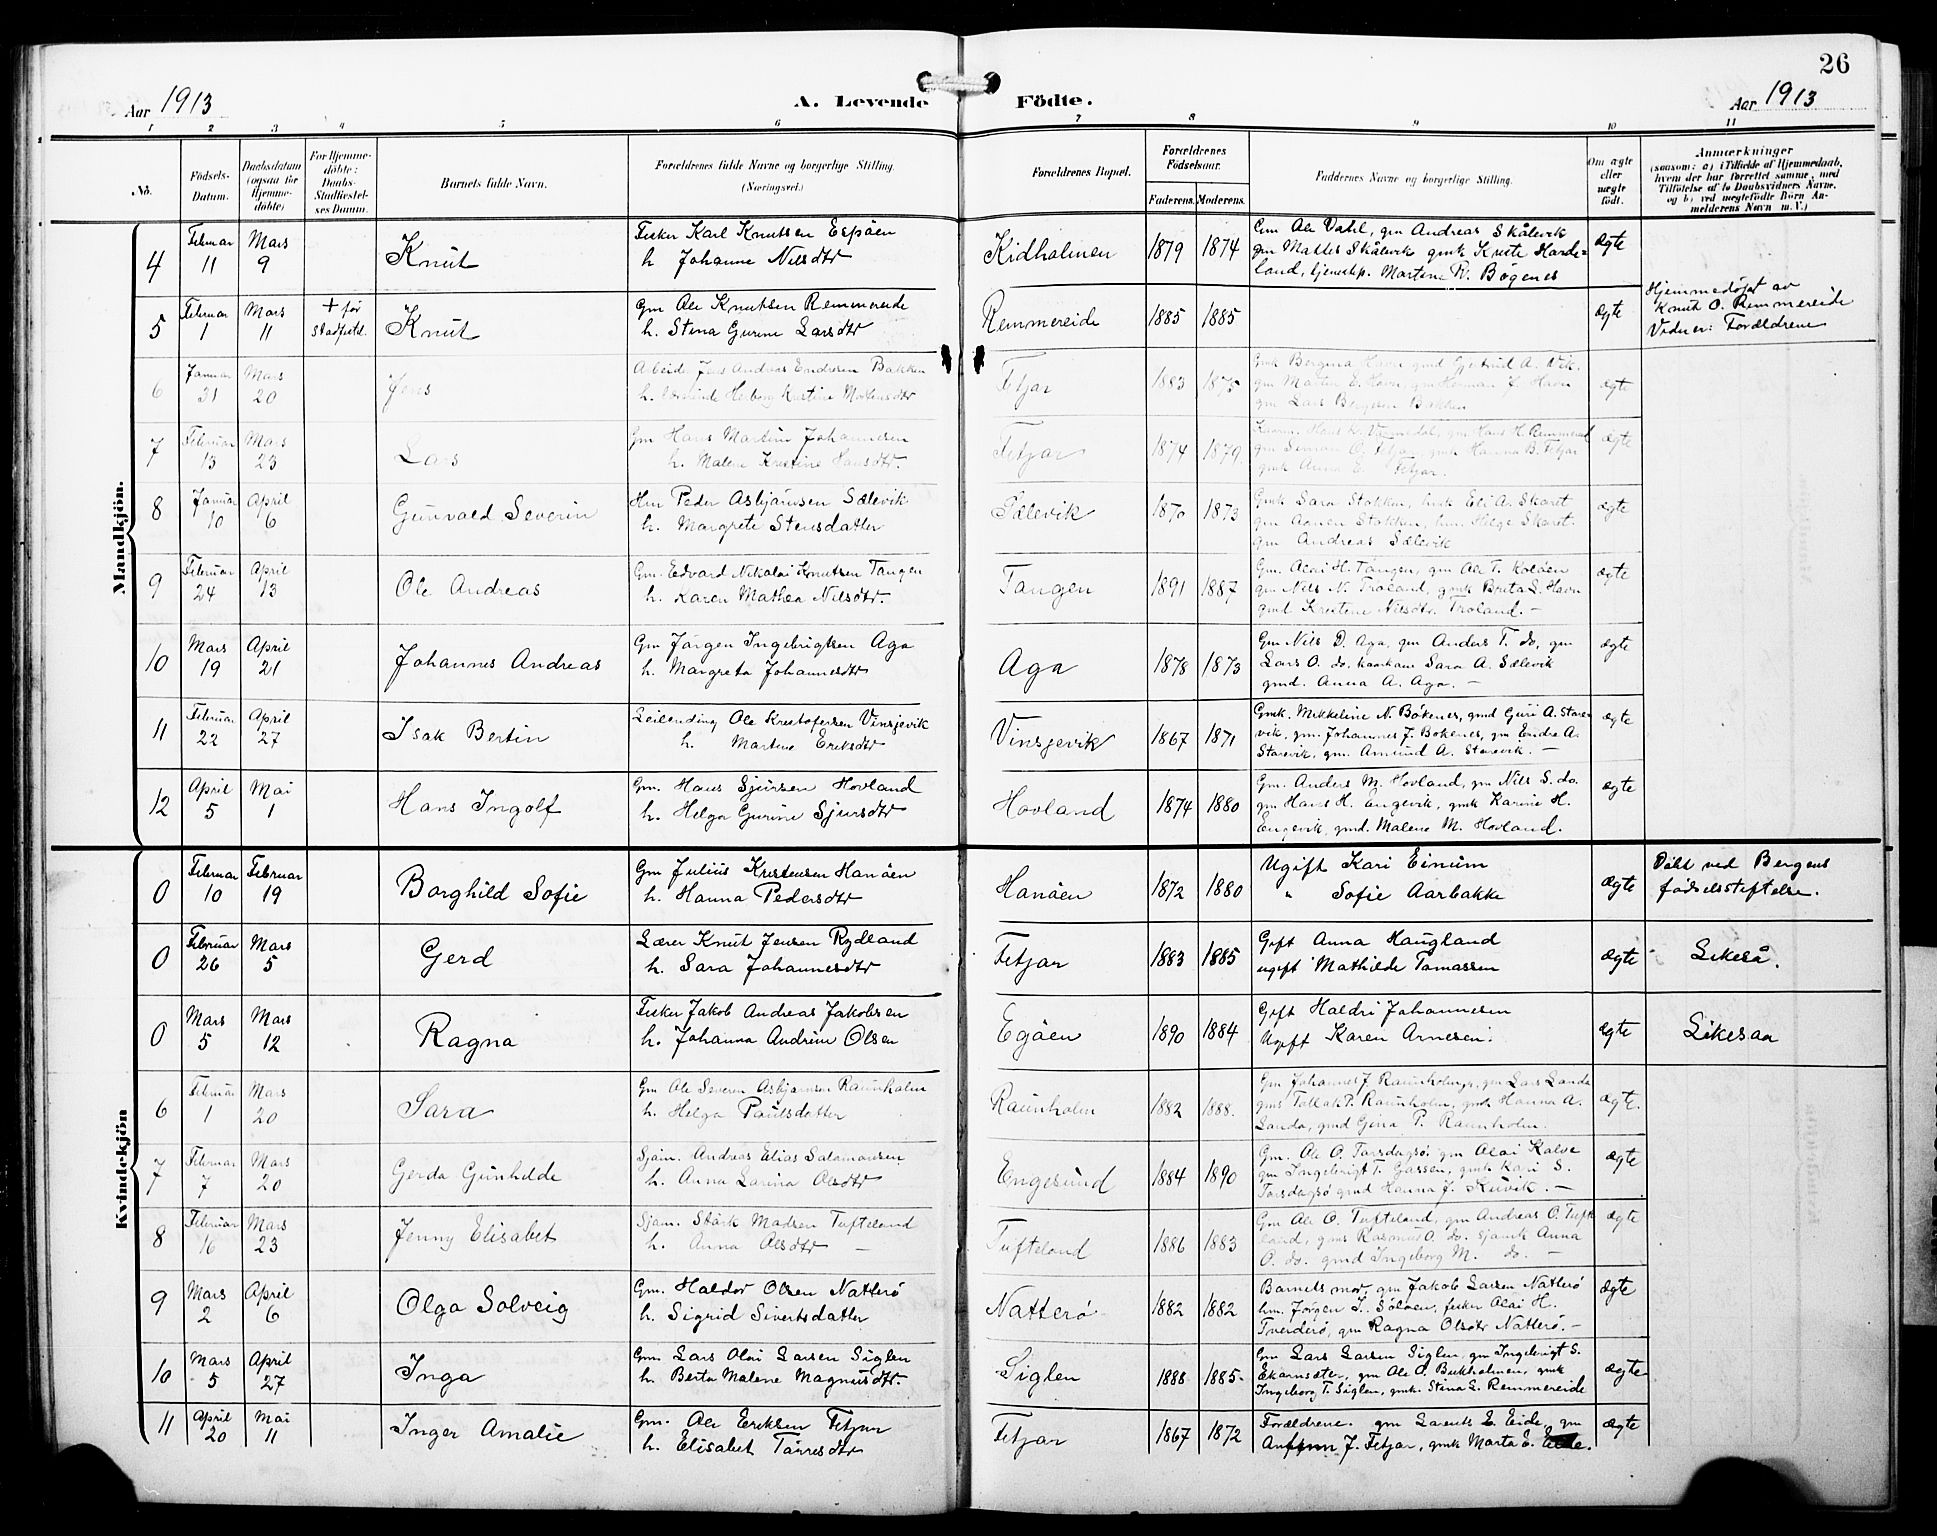 26
Aar 1913
A. Levende Födte.
Aar 1913
1 2 3 4 5 6 7 8 9 10 11
No.
Födsels-Datum.
Daabsdatum (ogsaa for Hjemme-döbte)
For Hjemme-döbte: Daabs-Stadfæstel-ses Datum.
Barnets fulde Navn.
Forældrenes fulde Navne og borgerlige Stilling.
(Næringsvei.)
Forældrenes Bopæl.
Forældrenes Födselsaar.
Faderens. Moderens.
Faddernes Navne og borgerlige Stilling.
Om ægte eller uægte födt.
Anmærkninger
(saasom: a) i Tilfælde af Hjemmedaab,
hvem der har forrettet samme, med
Tilföielse af to Daabsvidners Navne.
og b) ved uægtefödte Börn An-
melderens Navn m. V.)
Mandkjön.
4 Februar 11 Mars 9 Knut
Fisker Karl Knutsen Espöen
h. Johanne Nilsdtr
Kidholmen 1879 1874
Gm Ole Vahl, gm Andreas Skålevik
gm Mattis Skålevik gmk Kriste Harde-
land, tjenestp. Martine R. Bögenes
ægte
5 Februar 1 Mars 11 + før stadfest. Knut
Gm Ole Knutsen Remmereide
h. Stina Gurine Larsdtr
Remmereide 1885 1885 ægte
Hjemmedøpt av
Knut O. Remmereide
Vidner: Forældrene
6 Januar 31 Mars 20 Jens
Arbeider Jens Andreas Endresen Bakken
h. lærerinde Herborg Kristine Mortensdtr
Fitjar 1883 1875
gmk Bergina Havn gmd Gjertrud A. Vik.
gm Martin E. Havn, gm Herman J. Havn
gm Lars Bergsen Bakken
ægte
7 Februar 13 Mars 23 Lars
Gm Hans Martin Johannesen
h. Malene Kristine Hansdtr.
Fitjar 1874 1879
gm Simon O. Fitjar, gmk Hanna B. Fitjar
gmk Anna E. Fitjar.
ægte
8 Januar 10 April 6 Gunvald Severin
Hm Peder Asbjörnsen Sælevik
h. Margrete Stensdatter
Sælevik 1870 1873
Gmk Sara Stokken, hmk Eli A. Skaret
gm Aamen Stokken, hm. Helge Skaret.
gm Andreas Sælevik
ægte
9 Februar 24 April 13 Ole Andreas
Gm. Edvard Nikolai Knutsen Tangen
h. Karen Mathea Nilsdtr.
Tangen 1891 1887
Gm. Olai H. Tangen, gm Ole T. Koløen
gm Nils N. Troland, gmk Brita S. Havn
gmd Kristine Nilsdtr. Troland. –
ægte
10 Mars 19 April 21 Johannes Andreas
Gm Jørgen Ingebrigtsen Aga
h. Margreta Johannesdtr
Aga 1878 1873
Gm Nils D. Aga, gm Anders T. do, gm
Lars O. do. Sara A. Sælevik
gmd. Anna A. Aga. –
ægte
11 Februar 22 April 27 Isak Bertin
Leilending Ole Kristofersen Vinsjevik
h. Martine Eriksdtr
Vinsjevik 1867 1871
Gmk. Mikkeline N. Bökenes, gmd Guri A. Stare-
vik, gm. Johannes J. Bokenes, gm Endre A.
Starevik, gm. Amund A. Starevik. –
ægte
12 April 5 Mai 1 Hans Ingolf
Gm. Hans Sjursen Hovland
h. Helga Gurine Sjursdtr
Hovland 1874 1880
Gm. Anders M. Hovland, gm Nils S. do.
gm Hans H. Engevik, gmk Karine H.
Engevik, gmd. Malene M. Hovland.
ægte
Kvindekjön
0 Februar 10 Februar 19 Borghild Sofie
Gm Julius Kristensen Hanøen
h. Hanna Pedersdtr
Hanøen 1872 1880
Ugift Kari Einum
" Sofie Aarbakke
ægte
Döbt ved Bergens
fødselsstiftelse.
0 Februar 26 Mars 5 Gerd
Lærer Knut Jensen Rydland
h. Sara Johannesdtr
Fitjar 1883 1885
Gift Anna Haugland
ugift Mathilde Tomassen
ægte
Likeså.
0 Mars 5 Mars 12 Ragna
Fisker Jakob Andreas Jakobsen
h. Johanna Andrine Olsen
Egøen 1890 1884
Gift Haldri Johannesen
Ugift Karen Arnesen.
ægte
Likesaa
6 Februar 1 Mars 20 Sara
Gm Ole Severin Asbjørnsen Raunholm
h. Helga Paulsdatter
Raunholm 1882 1888.
Gm Johannes J. Raunholm, gm Lars Landa
gms Tollak P. Raunholm, gmk Hanna A.
Landa, gmd Gina P. Raunholm.
ægte.
7 Februar 7 Mars 20 Gerda Gunhilde
Sjöm. Andreas Elias Salamonsen
h. Anna Larina Olsdtr
Engesund 1884 1890
Gm. Ole O. Torsdagsø, gm Olai Kalve
gm Ingebrigt T. Gåssen, gmk Kari S.
Torsdagsø gmd Hanna J. Kuvik. –
ægte
8 Februar 16 Mars 23 Jenny Elisabet
Sjöm. Störk Madsen Tufteland
h. Anna Olsdtr –
Tufteland 1886 1883
Gm Ole O. Tufteland, gm Andreas O. Tufte-
land, gms Rasmus O. do. sjömk Anna
O. do. gmd Ingeborg M. do. –
ægte
9 Mars 2 April 6 Olga Solveig
Gm. Haldor Olsen Natterö
h. Sigrid Sivertsdatter
Natterö 1882 1882
Barnets mor, gm Jakob Larsen Natterö
hm. Jørgen I. Søløen, fisker Olai H.
Tverderö, gm Ragna Olsdtr Natterö. –
ægte
10 Mars 5 April 27 Inga
Gm. Lars Olai Larsen Siglen
h. Berta Malene Magnusdtr.
Siglen 1888 1885.
Gm Lars Larsen Siglen, gm Ingebrigt S.
Ekornsæter, gm Ole O. Bukkholmen, gmk
Ingeborg T. Siglen, gmk. Stina L. Remmereide
ægte
11 April 20 Mai 11 Inger Amalie
Gm. Ole Eriksen Fitjar
h. Elisabet Tørresdtr
Fitjar 1867 1872
Forældrene. gm Lorents E. Eide, gm
J. Fitjar, gmk Marta E. Eide.
ægte